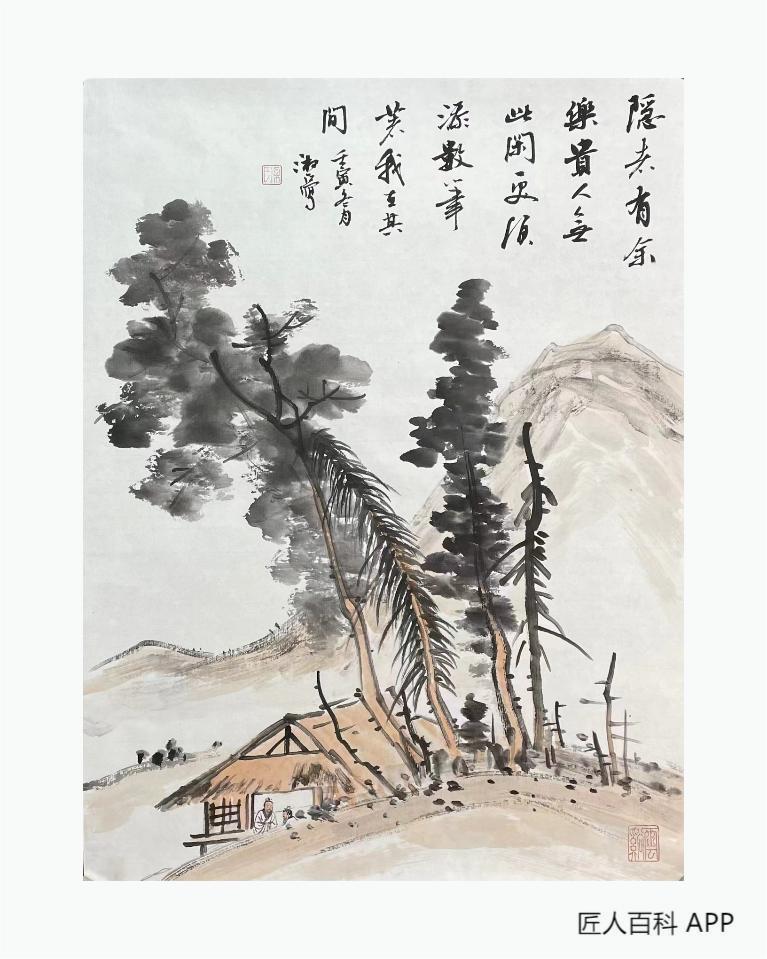 隐者有余
樂貴人無
此閑更須
添數筆
著我在其
間
壬寅冬月
匠人百科 APP